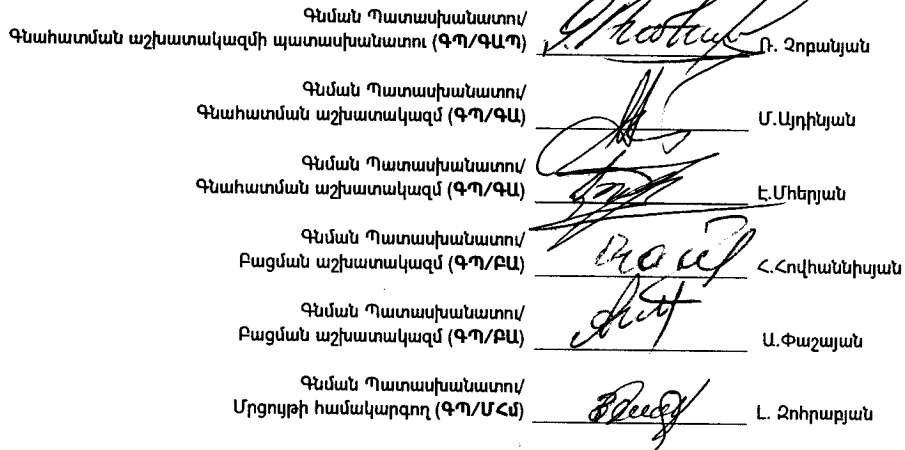 Գնման Պատասխանատու/
Գնահատման աշխատակազմի պատասխանատու (ԳՊ/ԳԱՊ) Ռ. Չոբանյան
Գնման Պատասխանատու/
Գնահատման աշխատակազմ (ԳՊ/ԳԱ) Մ.Այդինյան
Գնման Պատասխանատու/
Գնահատման աշխատակազմ (ԳՊ/ԳԱ) Է.Միերյան
Գնման Պատասխանատու/
Բացման աշխատակազմ (ԳՊ/ԲԱ) Հ.Հովհաննիսյան
Գնման Պատասխանատու/
Բացման աշխատակազմ (ԳՊ/ԲԱ) Ա.Փաշայան
Գնման Պատասխանատու/
Մրցույթի համակարգող (ԳՊ/ՄՀմ) Լ. Զոհրաբյան